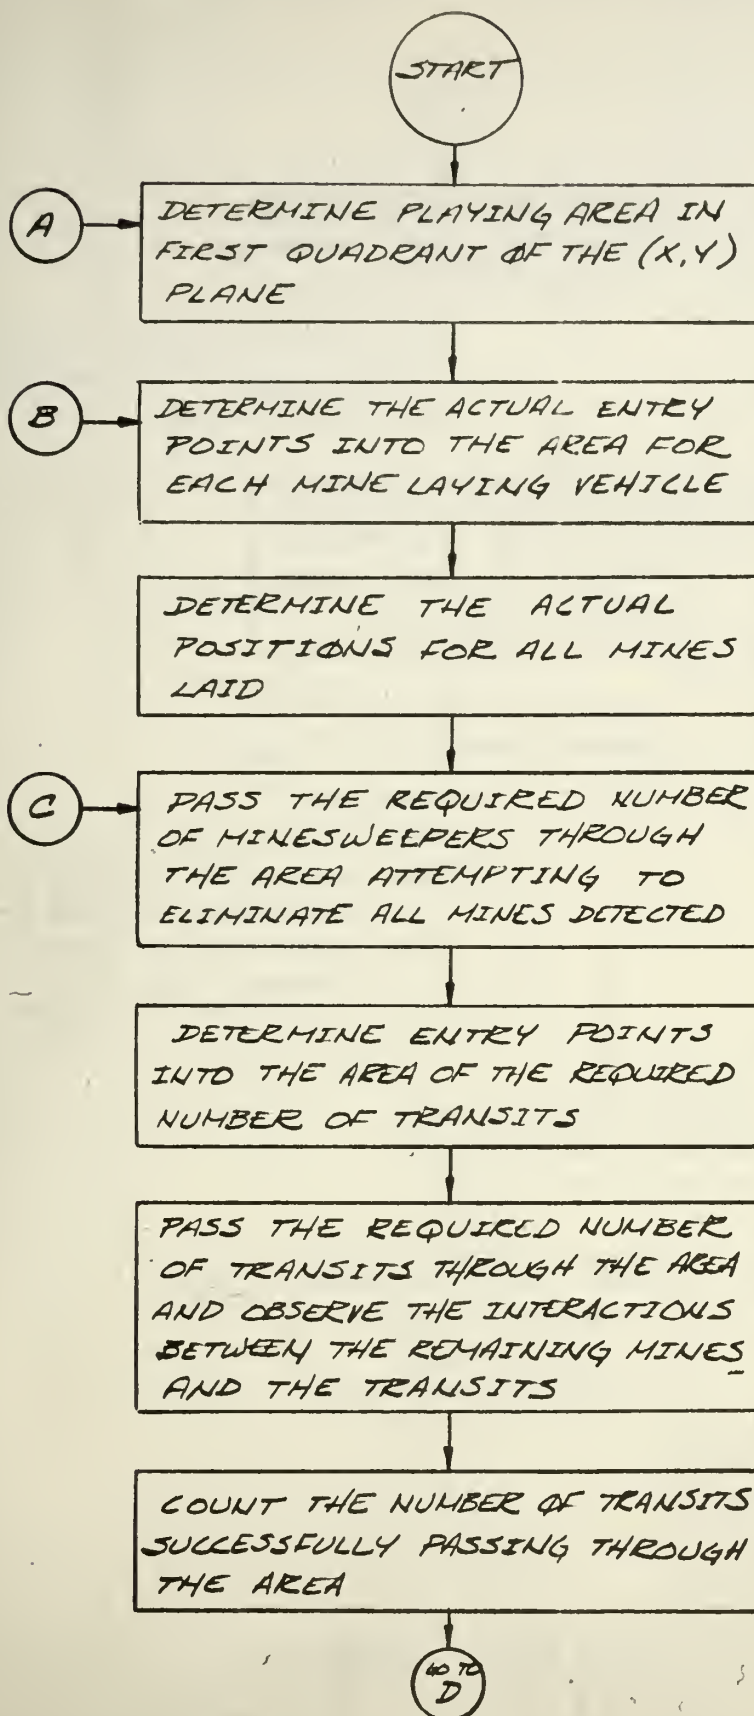 START
A
DETERMINE PLAYING AREA IN
FIRST QUADRANT ØF THE (X,Y)
PLANE
B
DETERMINE THE ACTUAL ENTRY
POINTS INTO THE AREA FOR
EACH MINE LAYING VEHICLE
DETERMINE THE ACTUAL
POSITIØNS FOR ALL MINES
LAID
C
PASS THE REQUIRED NUMBER
OF MINESWEEPERS THROUGH
THE AREA ATTEMPTING TO
ELIMINATE ALL MINES DETECTED
DETERMINE ENTRY POINTS
INTO THE AREA OF THE REQUIRED
NUMBER OF TRANSITS
PASS THE REQUIRED NUMBER
OF TRANSITS THROUGH THE AREA
AND OBSERVE THE INTERACTIONS
BETWEEN THE REMAINING MINES
AND THE TRANSITS
COUNT THE NUMBER ØF TRANSITS
SUCCESSFULLY PASSING THROUGH
THE AREA
GO TO
D